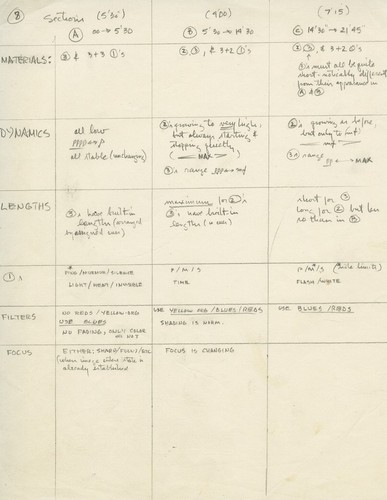 ⑧ Sections (5'30") (9'00) (7'15)
Ⓐ 00 → 5'30 Ⓑ 5'30 → 14'30 Ⓒ 14'30" → 21'45"
MATERIALS:
② & 3+3 ①'s
②, ③, & 3+2 ①'s
& 3+2 ①'s
①'s must all be quite
short - noticeably different
from their appearance in
Ⓐ & Ⓑ
DYNAMICS
all low
all stable (unchanging)
②'s growing to very high,
but always starting &
stopping quietly
(MAX)
③'s range
②'s growing as before,
but only to (mf)
range pp MAX
LENGTHS
②'s have built-in
lengths (arranged
maximum for ②'s
③'s have built-in
lengths
short for ③
long for ② but less
so than in Ⓑ
①'s
PINK/MIRROR/SILENCE
LIGHT/HEAT/INVISIBLE
P/M/S
TIME
P/M/S
FLASH/WHITE
FILTERS
NO REDS/YELLOW-
USE BLUES
NO FADING, ONLY COLOR
OR NOT
USE YELLOW-/BLUES/REDS
SHADING IS NORM.
USE BLUES/REDS
FOCUS
EITHER: SHARP/FUZZY/
(when image enters state is
already established)
FOCUS IS CHANGING